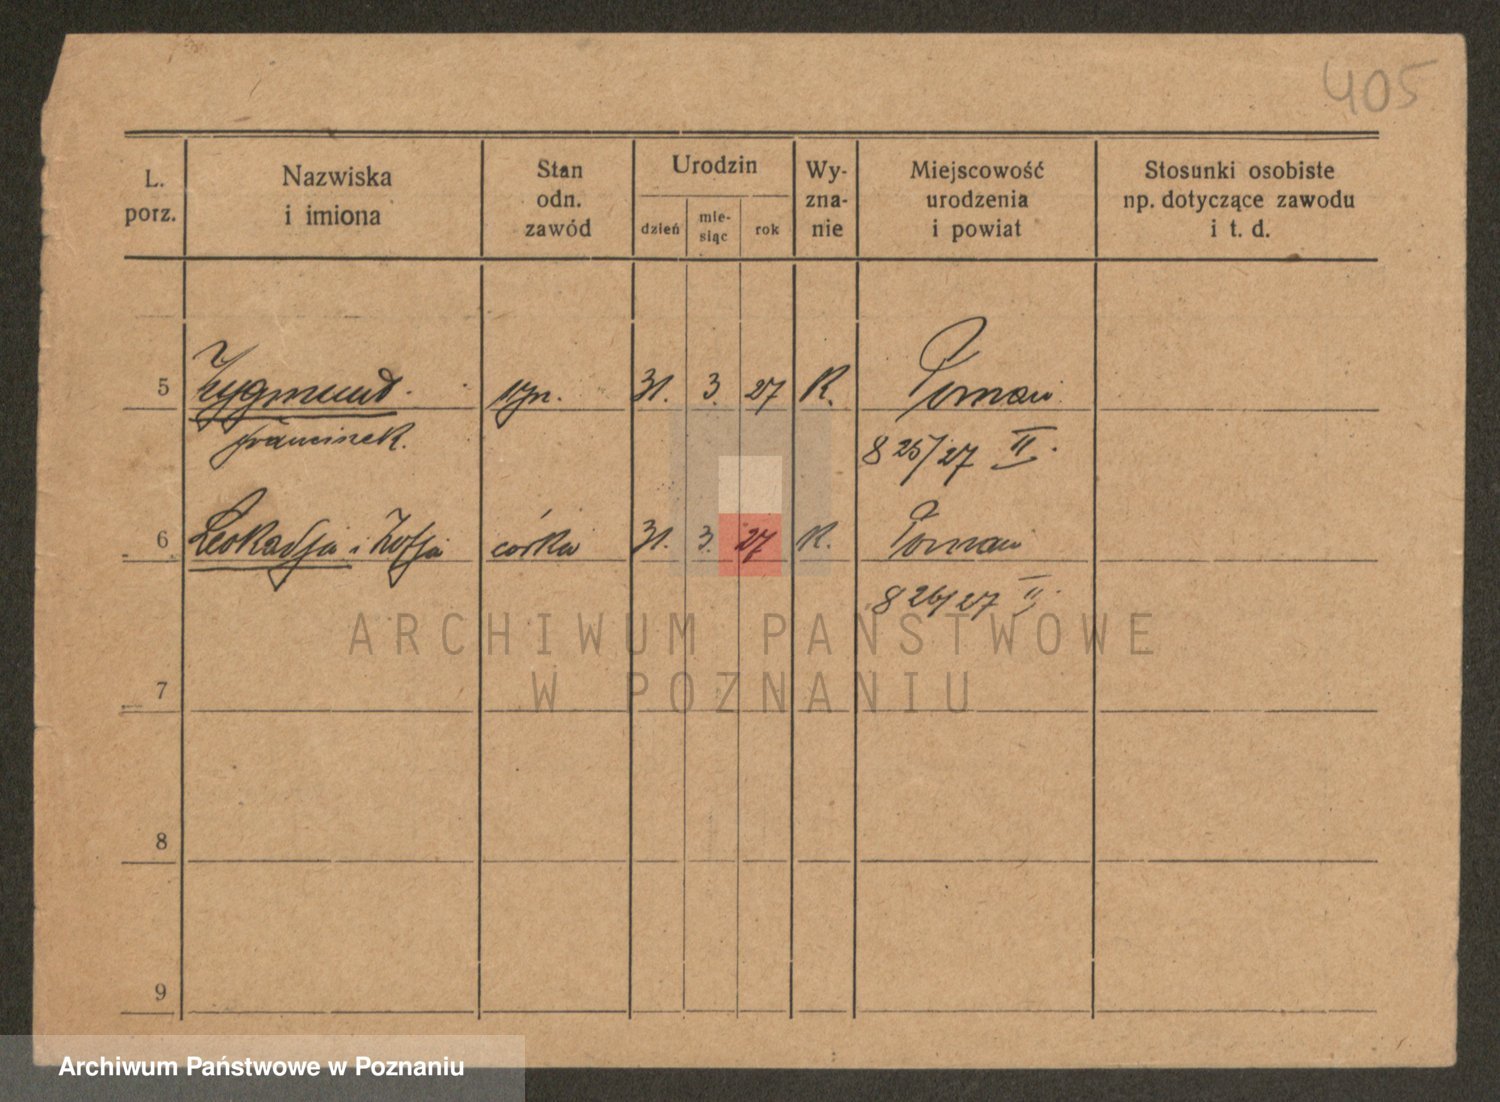 405
L. porz.
Nazwiska i imiona
Stan odn. zawód
Urodzin
dzień
mie-siąc
rok
Wy-zna-nie
Miejscowość urodzenia i powiat
Stosunki osobiste np. dotyczące zawodu i t. d.
5 Zygmund syn. 31. 3. 27 K. Poznań
Franciszek. 825/27 II.
6 Leokadja i Zofja córka 31. 3. 27 K. Poznań
826/27 II.
ARCHIWUM PAŃSTWOWE
W POZNANIU
7
8
9
Archiwum Państwowe w Poznaniu